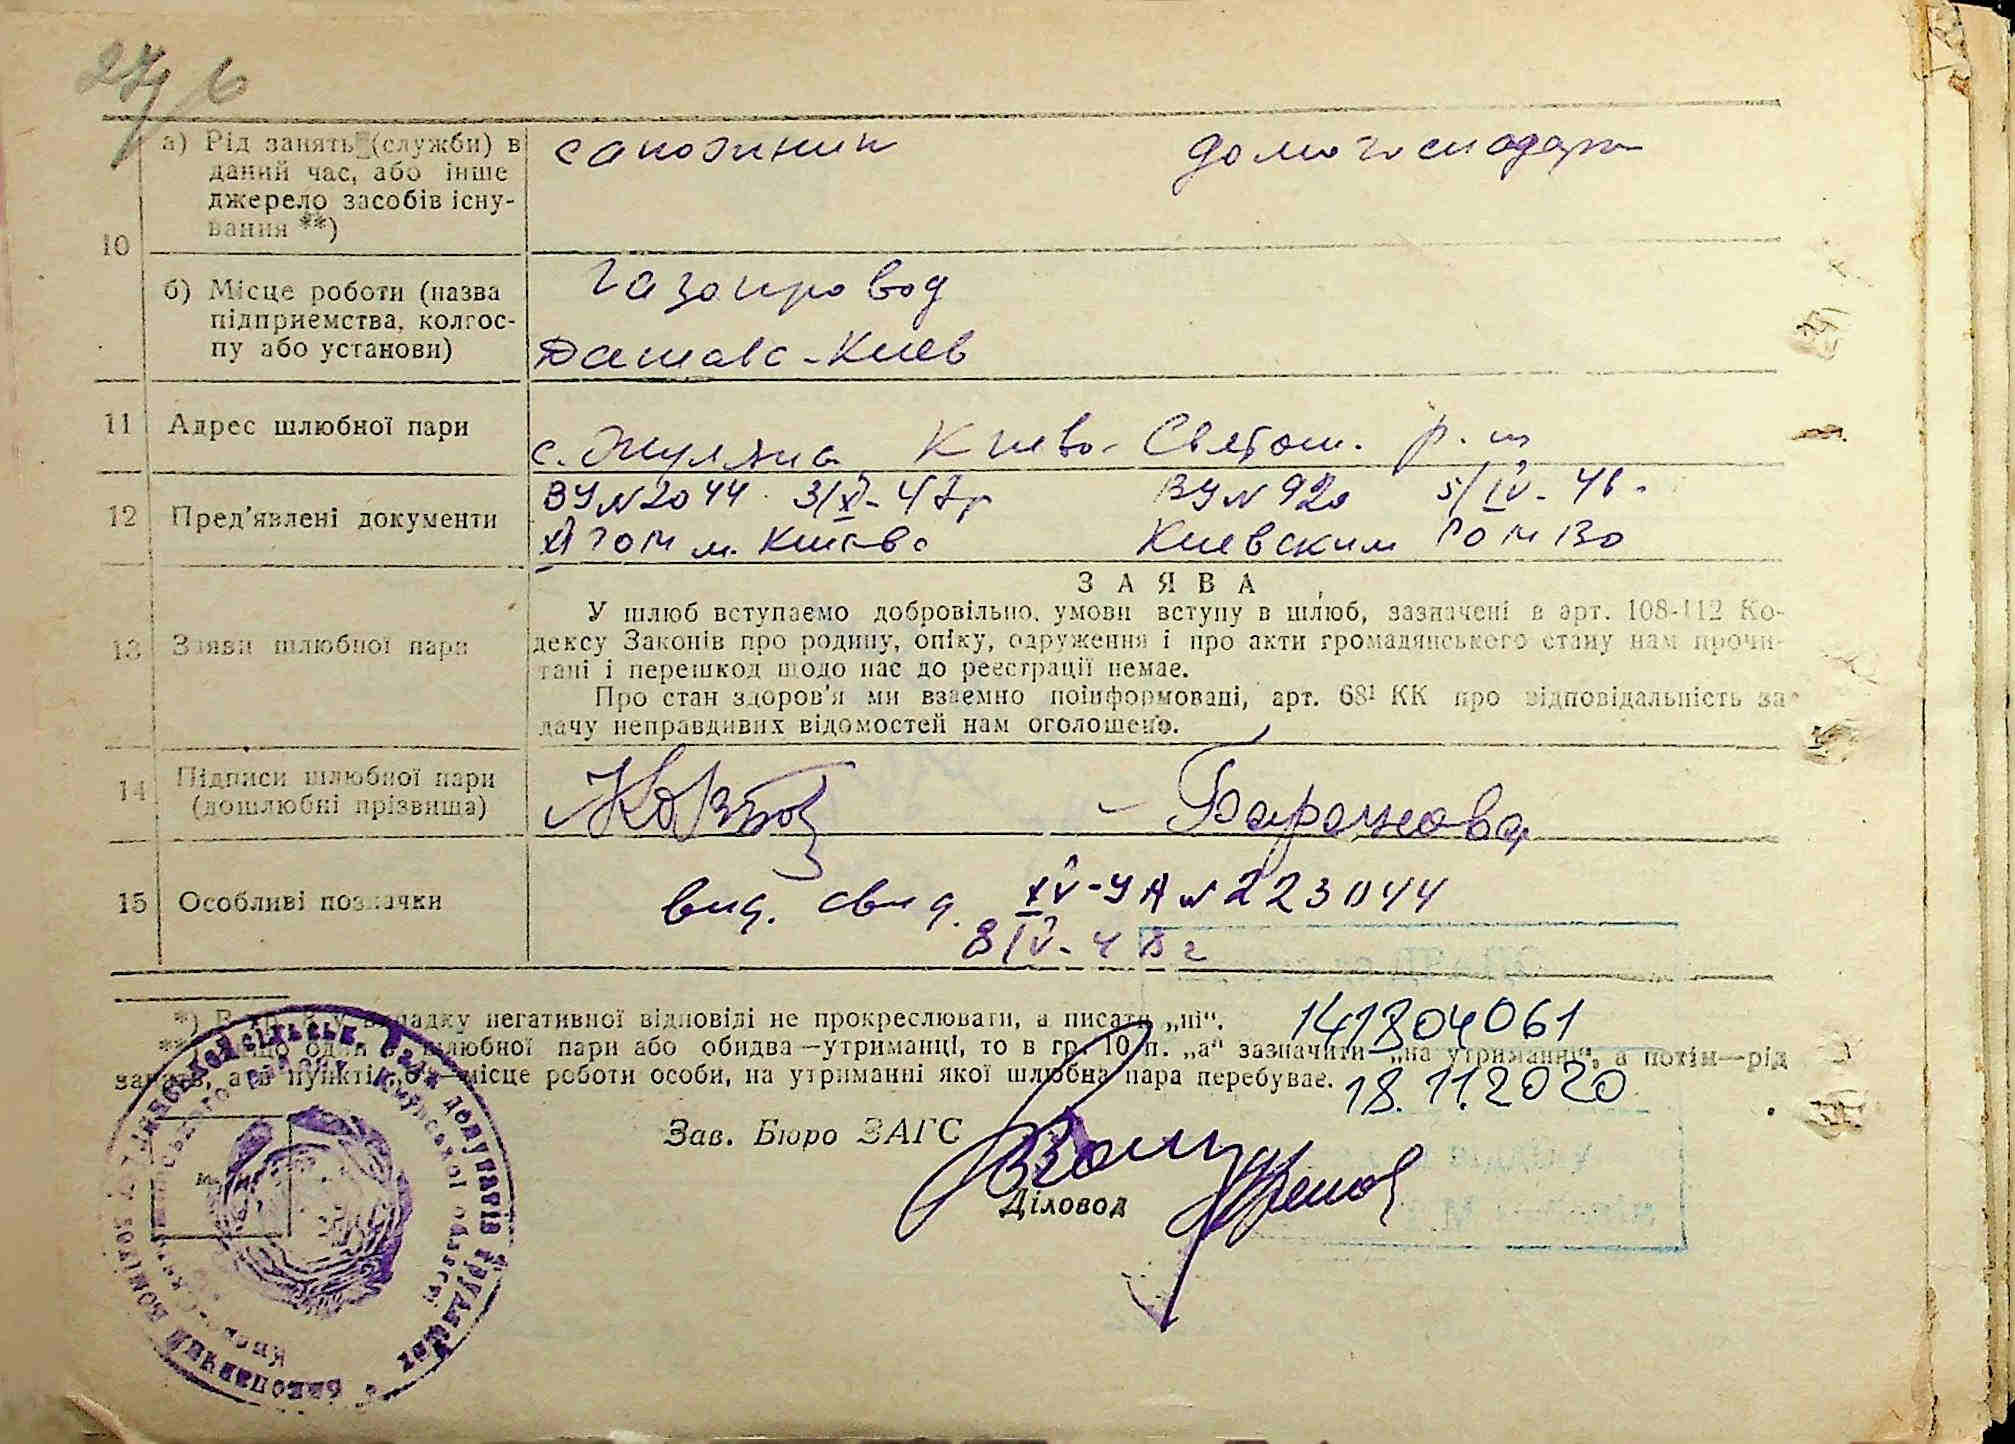 а) Рід занять (служби) в даний час, або інше джерело засобів існування **)
сапожник домогосподарк
10
б) Місце роботи (назва підприємства, колгоспу або установи)
Газопровод
Дашава-Киев
11 Адрес шлюбної пари
с. Жуляна Києво-Святош. р-н
12 Пред'явлені документи
ВУ№2044 3/X-47г ВУ№920 5/IV-46
ХІ ГОМ м. Києва Киевским ГОМ
З А Я В А
13 Заяви шлюбної пари
У шлюб вступаємо добровільно, умови вступу в шлюб, зазначені в арт. 108-112 Ко-
дексу Законів про родину, опіку, одруження і про акти громадянського стану нам прочи-
тані і перешкод щодо нас до реєстрації немає.
Про стан здоров'я ми взаємно поінформовані, арт. 68¹ КК про відповідальність за
дачу неправдивих відомостей нам оголошено.
14 Підписи шлюбної пари (дошлюбні прізвища)
Баранова
15 Особливі позначки
вид. свид. XV-УА№223044
8/IV-48г
*) В гр. 8 у випадку негативної відповіді не прокреслювати, а писати „ні“.
**) Якщо один з шлюбної пари або обидва—утриманці, то в гр. 10 п. „а“ зазначити „на утриманні“, а потім—рід
занять, а в пункті „б“ місце роботи особи, на утриманні якої шлюбна пара перебуває.
141804061
18.11.2020
Зав. Бюро ЗАГС
Діловод